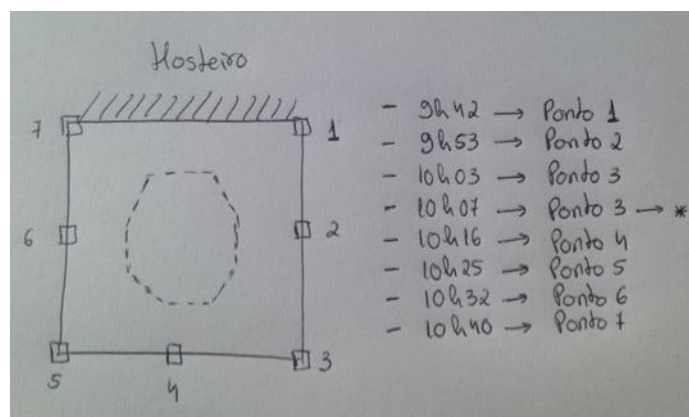 Mosteiro
7
1
6
2
5
4
3
- 9h42 → Ponto 1
- 9h53 → Ponto 2
- 10h03 → Ponto 3
- 10h07 → Ponto 3 → *
- 10h16 → Ponto 4
- 10h25 → Ponto 5
- 10h32 → Ponto 6
- 10h40 → Ponto 7